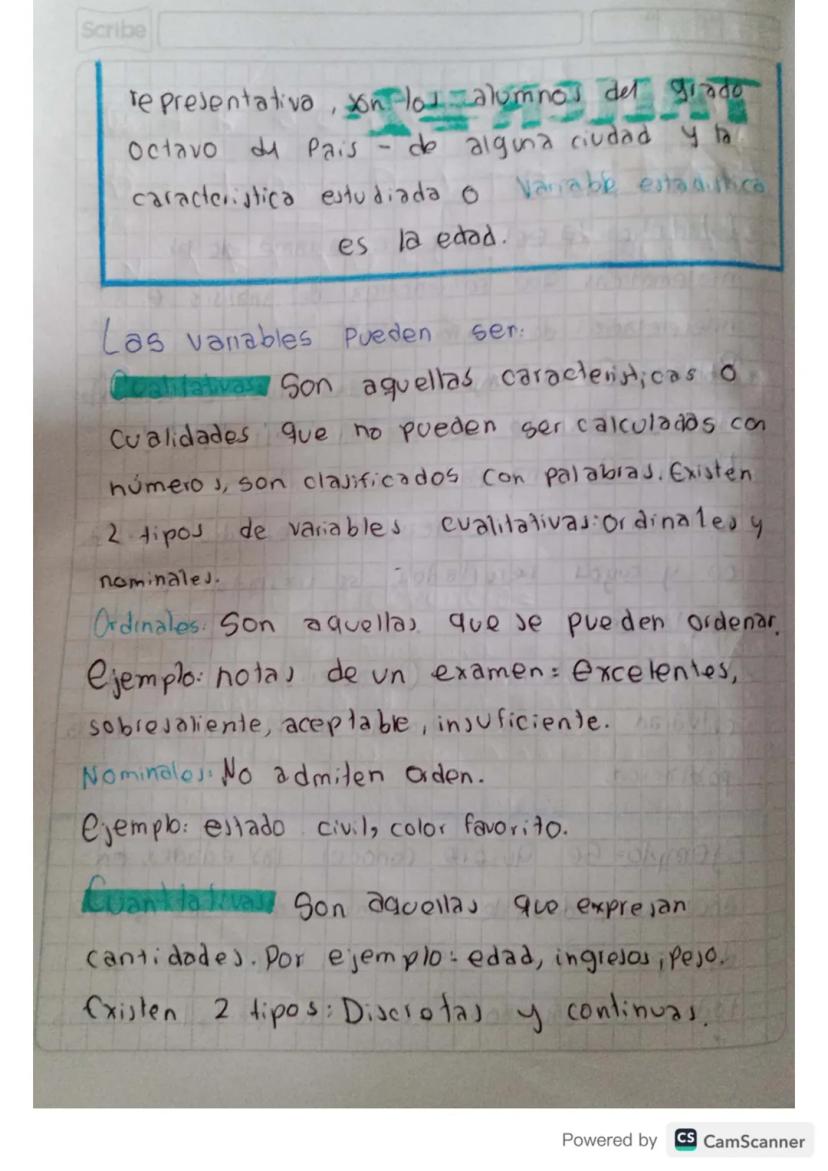 Scribe
representativa, son los alumnos del grado
octavo del Pais - de alguna ciudad y la
caracteristica estudiada o Variable estadistica
es la edad.
Las variables pueden ser:
Cualitativas Son aquellas caracteristicas o
cualidades que no pueden ser calculados con
números, son clasificados con palabras. Existen
2 tipos de variables cualitativas: ordinales y
nominales.
Ordinales: Son aquellas que se pueden ordenar.
Ejemplo: notas de un examen: excelentes,
sobresaliente, aceptable, insuficiente.
Nominales: No admiten orden.
Ejemplo: estado civil, color favorito.
Cuantitativas Son aquellas que expresan
cantidades. Por ejemplo: edad, ingresos, peso.
Existen 2 tipos: Discretas y continuas.
Powered by CS CamScanner